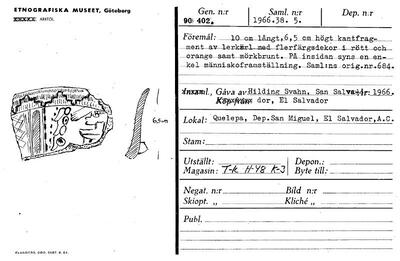 ETNOGRAFISKA MUSEET, Göteborg
ARTÖL
6,5 cm
Gen. n:r
Saml. n:r
Dep. n:r
90 402.
1966.38. 5.
Föremål: 10 cm långt,6,5 cm högt kantfrag-
ment av lerkärl med flerfärgsdekor i rött och
orange samt mörkbrunt. På insidan syns en en-
kel människoframställning. Saml:ns orig.nr.684.
Gåva av Hilding Svahn, San Salvador 1966.
Köp från dor, El Salvador
Lokal: Quelepa, Dep.San Miguel, El Salvador,A.C.
Stam:
Utställt: Depon.:
Magasin: T-k H-48 K-3 Byte till:
Negat. n:r Bild n:r
Skiopt. „ Kliché „
Publ.